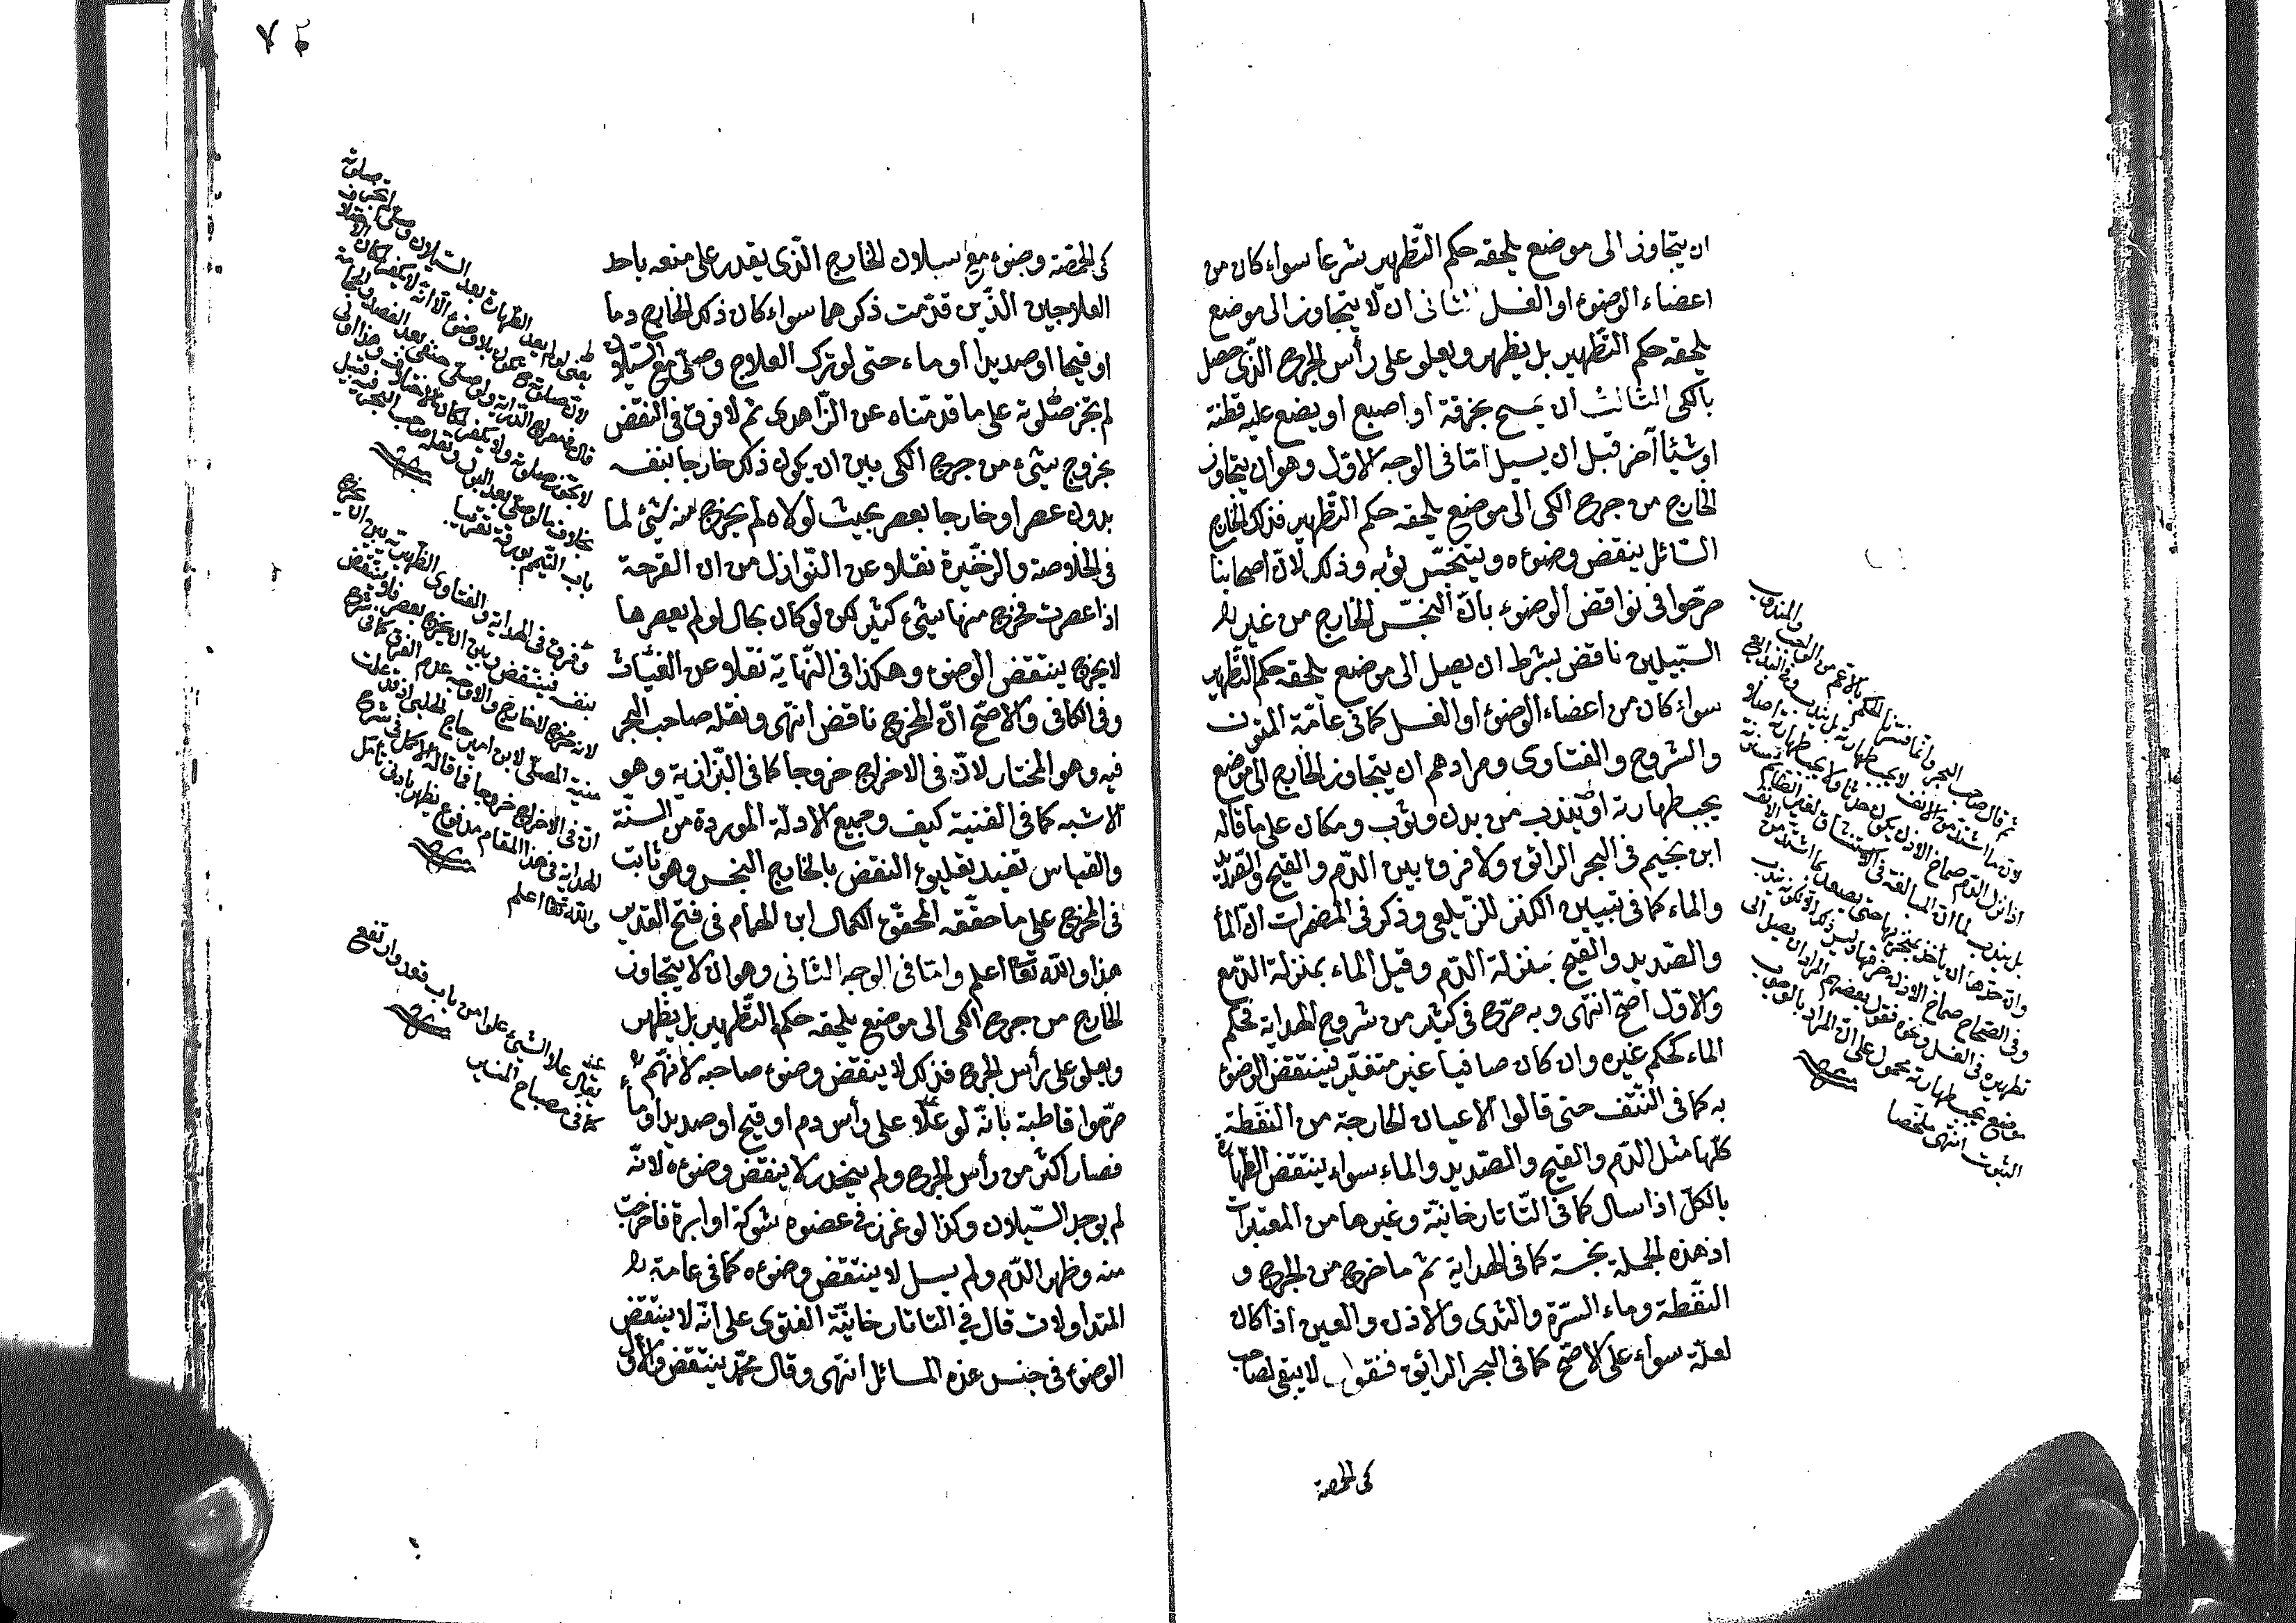 ان يتجاوز الى موضع يلحقه حكم التّطهير شرعا سواء كان من
اعضاء الوضوء او الغسل الثانى ان لا يتجاوز الى موضع
يلحقه حكم التّطهير بل يظهر ويعلو على رأس الجرح الّذى حصل
بالكى الثالث ان يمسح بخرقة او اصبع او يضع عليه قطنة
او شئيا آخر قبل ان يسيل امّا فى الوجه الاوّل وهو ان يتجاوز
الخارج من جرح الكى الى موضع يلحقه حكم التّطهير فذلك الخارج
السّائل ينقض وضوءه ويتنجّس ثوبه وذلك لانّ اصحابنا
صرّحوا فى نواقض الوضوء بانّ النجس الخارج من غير
السّبيلين ناقض بشرط ان يصل الى موضع يلحقه حكم التّطهير
سواء كان من اعضاء الوضوء او الغسل كما فى عامّة المتون
والشروح والفتاوى ومرادهم ان يتجاوز الخارج الى موضع
يجب طهارته او يندب من بدن وثوب ومكان على ما قاله
ابن نجيم فى البحر الرائق ولا فرق بين الدّم والقيح والصّديد
والماء كما فى تبيين الكنز للزّيلعى وذكر فى المضمرات انّ الماء
والصّديد والقيح بمنزلة الدّم وقيل الماء بمنزلة الدّمع
والاوّل اصحّ انتهى وبه صرّح فى كثير من شروح الهداية فحكم
الماء كحكم غيره وان كان صافيا غير متغيّر فينتقض الوضوء
به كما فى النّتف حتى قالوا الاعيان الخارجة من النفّطة
كلّها مثل الدّم والقيح والصّديد والماء سواء ينتقض الطّهارة
بالكلّ اذا سال كما فى التّاتارخانيّة وغيرها من المعتبرات
اذ هذه الجملة نجسة كما فى الهداية ثم ما خرج من الجرح و
النفّطة وماء السّرّة والثدى والاذن والعين اذا كان
لعلّة سواء على الاصحّ كما فى البحر الرائق فنقول لا يبقى لصاحب
كى الحمصة
ثم قال صاحب البحر وانما فسّرنا الحكم بالاعم من الواجب والمندوب
لان ما اشتد من الانف لا يجب طهارته بل يندب
اذا نزل الدّم صماخ الاذن يكون حدثا
بل يندب لما ان المبالغة فى الاستنشاق لغير الصّائم
وان حدّها ان يأخذ الماء بمنخريه حتى يصعد الى ما اشتد من الانف
وفى الصّحاح صماخ الاذن خرقها وليس ذلك الا لكونه يندب
تطهيره فى الغسل ونحوه فقول بعضهم المراد ان يصل الى
موضع يجب طهارته محمول على ان المراد بالوجوب
الثبوت انتهى ملخصا
٧
كى الحمصة وضوء مع سيلان الخارج الّذى يقدر على منعه باحد
العلاجين الذّين قدّمت ذكرهما سواء كان ذلك الخارج دما
او قيحا او صديدا او ماء حتى لو ترك العلاج وصلّى مع السّيلان
لم تجز صلوته على ما قدمّناه عن الزّاهدى ثم لا فرق فى النقض
بخروج شيئ من جرح الكى بين ان يكون ذلك خارجا بنفسه
بدون عصر او خارجا بعصر بحيث لولاه لم يخرج منه شئ لما
فى الخلاصة والذخّيرة نقلا عن النّوازل من ان القرحة
اذا عصرت فخرج منها شئ كثير لكن لو كان بحال لو لم يعصرها
لا يخرج ينتقض الوضوء وهكذا فى النّهاية نقلا عن الغياث
وفى الكافى والاصّح انّ المخرج ناقض انتهى ونقله صاحب البحر
فيه وهو المختار لانّ فى الاخراج خروجا كما فى البزّازية وهو
الاشبه كما فى القنية كيف وجميع الادلّة الموردة من السنّة
والقياس تفيد تعليق النقض بالخارج النجس وهو ثابت
فى المخرج على ما حقّقه المحقّق الكمال ابن الهمام فى فتح القدير
هذا والله تعا اعلم وامّا فى الوجه الثّانى وهو ان لا يتجاوز
الخارج من جرح الكى الى موضع يلحقه حكم التّطهير بل يظهر
ويعلو على رأس الجرح فذلك لا ينقض وضوء صاحبه لانّهم
صرّحوا قاطبة بانّه لو علا على رأس دم او قيح او صديد او ماء
فصار اكثر من رأس الجرح ولم ينحدر لا ينقض وضوءه لانّه
لم يوجد السّيلان وكذا لو غرز فى عضوه شوكة او ابرة فاخرجت
منه وظهر الدّم ولم يسل لا ينتقض وضوءه كما فى عامة
المتداولات قال فى التاتارخانيّة الفتوى على انّه لا ينتقض
الوضوء فى جنس هذه المسائل انتهى وقال محمّد ينتقض والاوّل
يعنى لو لم يعد الطّهارة بعد السّيلان وصلّى لم تجز صلوته
لان صلوته تكون بلا وضوء الا انه لا يكفر
قال فى معراج الدّراية ولو صلّى حنفى بعد الفصد والحجامة
لا تجوز صلوته ولا يكفر لمكان الاختلاف
بخلاف ما لو صلّى بعد البول ونقله صاحب البحر
باب التّيمم بورقة تقريبا
وفرق فى الهداية والفتاوى الظّهيرية بين ان يخرج
بنفسه فينتقض وبين ان يخرج بعصر فلا ينتقض
لانه مخرج لا خارج والاوجه عدم الفرق كما فى شرح
منية المصلّى لابن امير حاج الحلبى
انّ فى الاخراج خروجا فما قاله الاكمل فى شرح
الهداية فى هذا المقام مدفوع يظهر بادنى تأمّل
والله تعا اعلم
يقال علا الشيئ علوا من باب قعد ارتفع
كما فى مصباح المنير